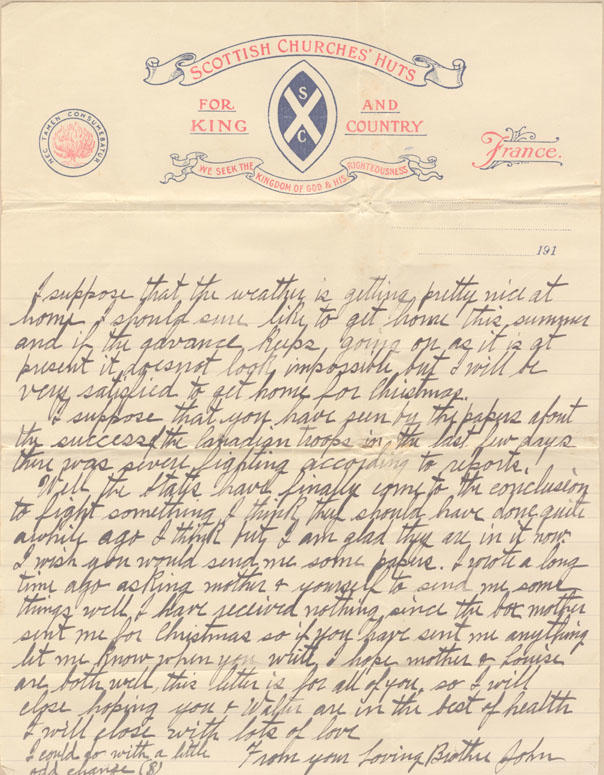 SCOTTISH CHURCHES' HUTS
FOR KING AND COUNTRY
S C
NEC TAMEN CONSUMEBATUR
WE SEEK THE KINGDOM OF GOD & HIS RIGHTEOUSNESS
France.
191
I suppose that the weather is getting pretty nice at
home. I should sure like to get home this summer
and if the advance keeps going on as it is at
present it doesnot look impossible but I will be
very satisfied to get home for Christmas.
I suppose that you have seen by the papers about
the success of the Canadian troops in the last few days
there was severe fighting according to reports.
Well the States have finally come to the conclusion
to fight something I think they should have done quite
awhile ago I think but I am glad they are in it now.
I wish you would send me some papers. I wrote a long
time ago asking mother & yourself to send me some
things well I have received nothing since the box mother
sent me for Christmas so if you have sent me anything
let me know when you write I hope mother & Louise
are both well this letter is for all of you so I will
close hoping you & Walter are in the best of health
I will close with lots of love
From your Loving Brother John
I could go with a little
odd change (8)